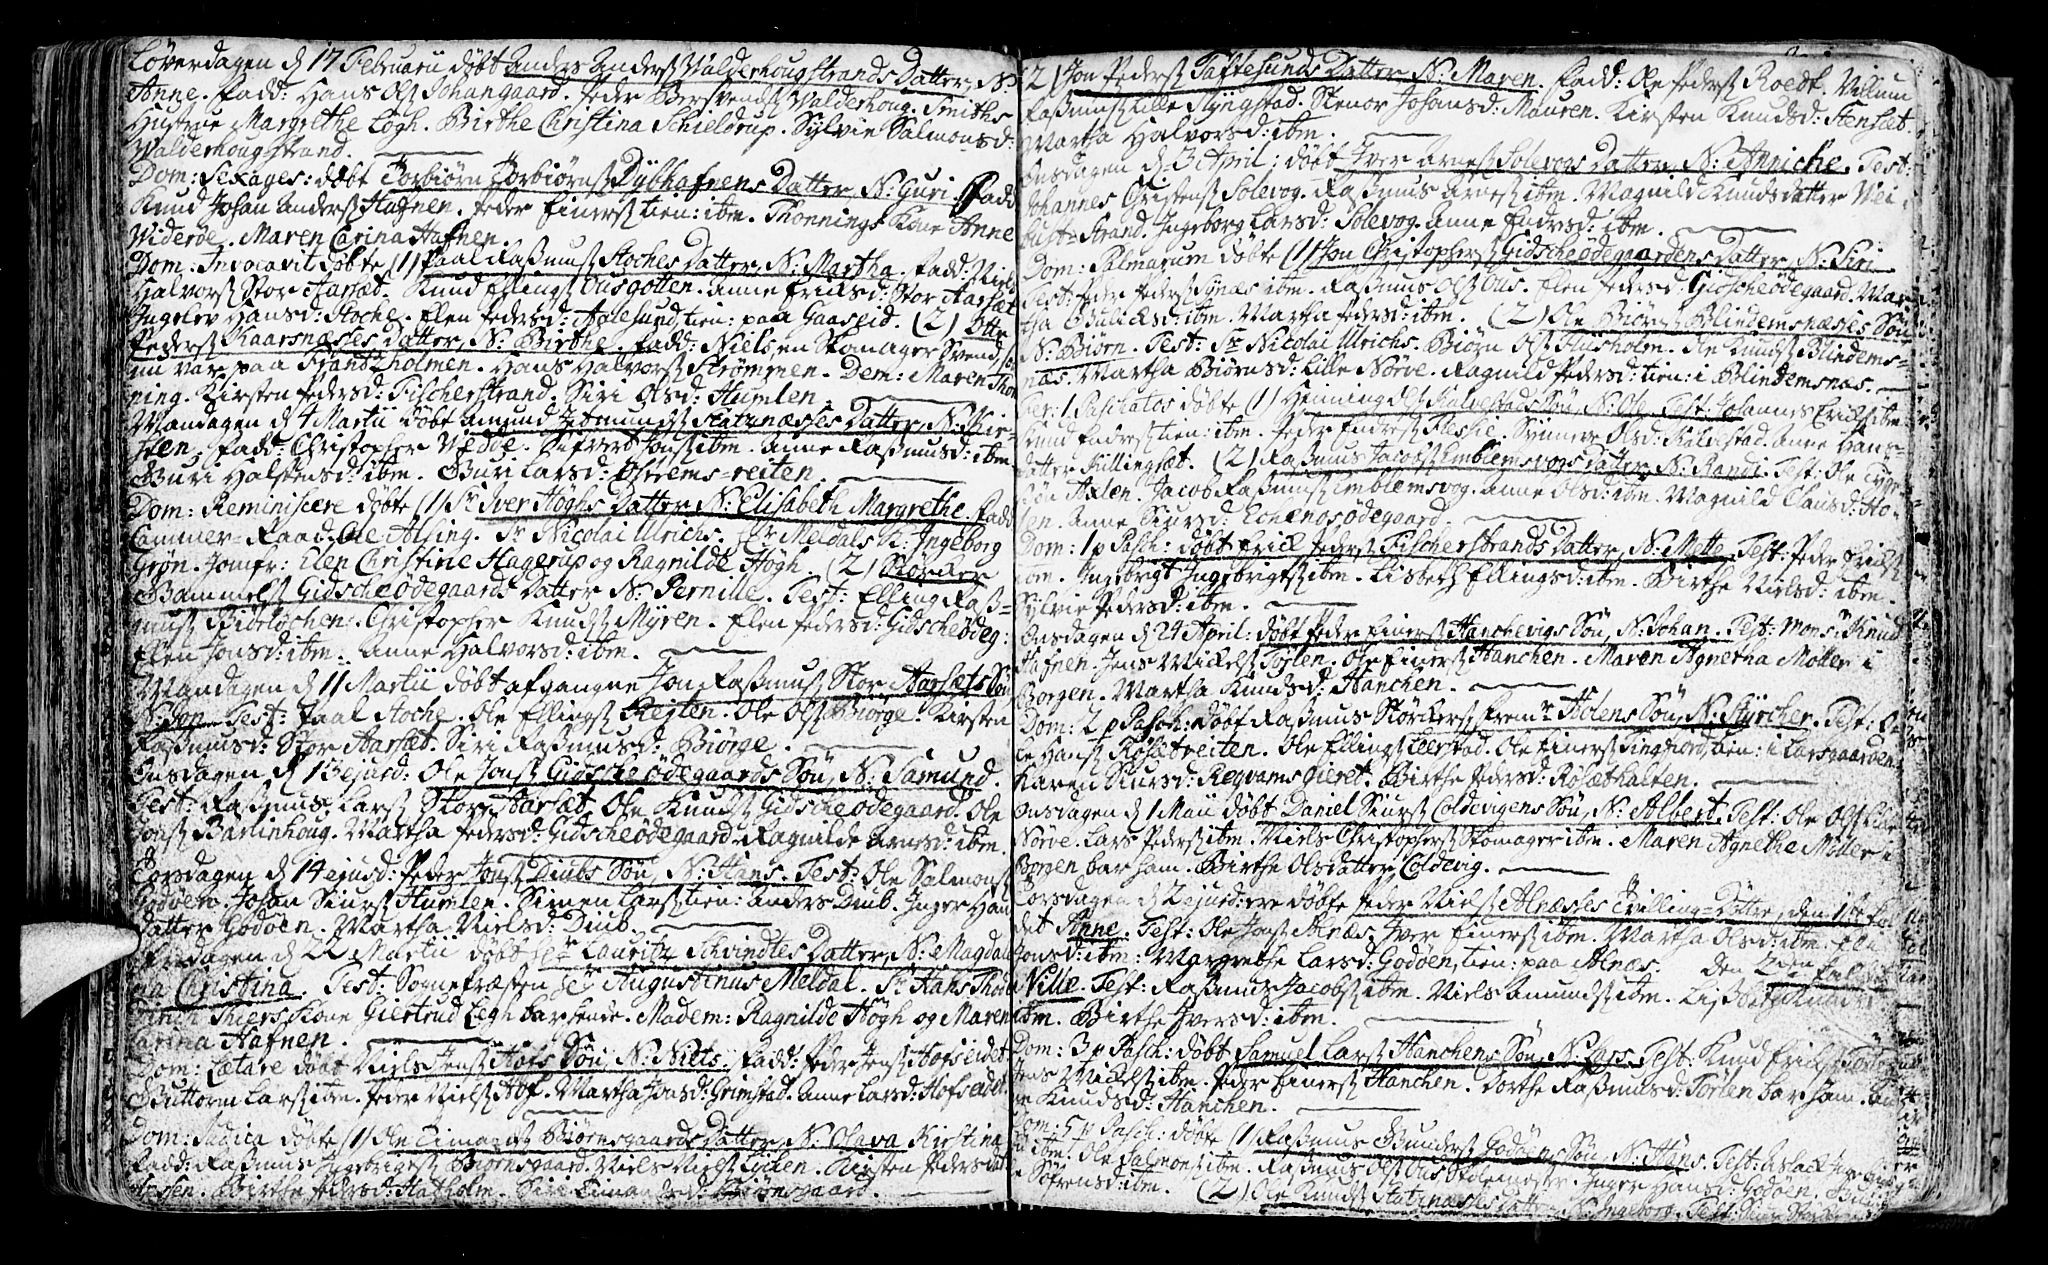 Løverdagen d 17 Februarii döbt Anders Anders Walderhougstrands Datter, N:
Anne. Fadd: Hans Ols Johangaard. Peder Bersvends Walderhoug. Smiths
Hustrue Margrethe Løgh. Birthe Christina Schieldrup. Sylvie Salmonsd:
Walderhougstrand.
Dom: Sexages: döbt Torbiörn Torbiörns Dybhafnens Datter, N: Guri. Fadd
Knud Johan Anders Hafnen. Peder Einers tien: ibm. Thonnings Kone Anne
Widerøe. Maren Carina Hafnen.
Dom: Invocavit döbte (1) Paal Rasmus Hoches Datter, N: Martha. Fadd: Niels
Halvors Stor Aarsæt. Knud Ellings Ousgotten. Anne Ericksd: Stor Aarsæt
Ingelev Hansd: Hoche. Elen Pedersd: Aalesund, tien: paa Gaaseid. (2) Otte
Peders Kaarsnæses Datter, N: Birthe. Fadd: Niels en Skomager Svend
nu var paa Strandholmen. Hans Halvors Strømmen. Dem: Maren Thon
ning. Kirsten Pedersd: Fischerstrand. Siri Olsd: Humlen.
Mandagen d 4 Martii döbt Amund Amunds Slatnæsses Datter, N: Kir-
sten. Fadd: Christopher Vedde. Sifvert Jons ibm. Anne Rasmusd: ibm
Guri Halstensd: ibm. Guri Larsd: Osrems-reiten.
Dom: Reminiscere döbte (1) Sr Iver Høghs Datter, N: Elisabeth Margrethe. Fadd
Cammer-Raad Ole Alsing. Sr Nicolai Ulrichs. Hr Meldals K: Ingeborg
Grøn. Jomfr: Elen Christine Hagerup og Ragnilde Høgh. (2)
Gammels Gidscheödegaards Datter N: Pernille. Test: Elling Ras-
mus Gidschehen. Christopher Knuds Myren. Elen Pedersd: Gidscheödeg:
Elen Jonsd: ibm. Anne Halvorsd: ibm.
Mandagen d 11 Martii döbt afgangne Jon Rasmus Stor Aarsæts Sön
N: Jon. Test: Paal Hoche. Ole Ellings Reiten. Ole Ols Biörge. Kirsten
Rasmusd: Stor Aarsæt. Siri Rasmusd: Biörge.
Onsdagen d 13 ejusd: Ole Jons Gidscheödegaards Sön, N: Samund.
Test: Rasmus Lars Stor Aarsæt. Ole Knuds Gidscheödegaard. Ole
Jons Barlinhoug. Martha Pedersd: Gidscheödegaard. Ragnilde Arnesd: ibm.
Torsdagen d 14 ejusd: Peder Jons Diubs Sön, N: Hans. Test: Ole Salmons
Godöen. Johan Siurs Humlen. Simen Lars tien: Anders Diub. Inger Han
Datter Godöen. Martha Nielsd: Diub.
Fredagen d 22 Martii döbt Hr Lauritz Schvindtes Datter, N: Magdale
na Christina. Test: Sognepræsten Hr Augustinus Meldal. Sr Hans Thode
Thiers Kone Giertrud Legh bar hende. Madem: Ragnilde Høgh og Maren
Carina Hafnen.
Dom: Lætare döbt Niels Jens Hofs Sön, N: Niels. Fadd: Peder Jens Hofseidet
Guttorm Lars ibm. Peder Niels Hof. Martha Jonsd: Grimstad. Anne Larsd: Hofseidet.
Dom: Judica döbte (1) Ole Eimans Biörnsgaards Datter, N: Olava Kirstina
Fadd: Rasmus Ingebrigts Biörnsgaard. Niels Niels Lychen. Kirsten Pedersdat
Birthe Pedersd: Hatholm. Siri Eimansd: Biörnsgaard.
(2) Jon Peders Taftesunds Datter, N: Maren. Fadd: Ole Peders Roedt. Villum
Rasmus Lille Slyngstad. Stenor Johansd: Mauren. Kirsten Knudsd: Stenset.
Martha Halvorsd: ibm.
Onsdagen d 3 April: döbt Iver Arnes Solevogs Datter, N: Anniche. Test:
Johannes Christens Solevog. Rasmus Arnes ibm. Magnild Knudsdatter Vei
bust-Strand. Ingeborg Larsd: Solevog. Anne Endersd: ibm.
Dom: Palmarum döbte (1) Jon Christophers Gidscheödegaardens Datter, N: Siri.
Test: Peder Peders ibm. Rasmus Ols Ous. Elen Pedersd: Gidscheödegaard. Mar
tha Gulicksd: ibm. Martha Pedersd: ibm. (2) Ole Biörns Blindemsnæses Sön
N: Biörn. Test: Sr Nicolai Ulrichs. Biörn Ols Husholm. Ole Knuds Blindems-
næs. Martha Biörnsd: Lille Nörve. Ragnild Pedersd: tien: i Blindemsnæs.
Fer: 1 Paschatos döbte (1) Henning Ols Kalvestads Sön, N: Ole. Test: Johannes Ericks ibm.
Knud Enders tien: ibm. Peder Enders Flessie. Synneve Olsd: Kalvestad. Anne Hans-
datter Killingsæt. (2) Rasmus Jacobs Emblemsvogs Datter, N: Randi. Test: Ole
Axlen. Jacob Rasmus Emblemsvog. Anne Olsd: ibm. Magnild Clausd: Ho-
len. Anne Siursd: Echenosödegaard.
Dom: 1 p Pasch: döbt Erick Peders Fischerstrands Datter, N: Mette. Test: Peder Ericks
ibm. Ingebrigt Ingebrigts ibm. Lisbet Ellingsd: ibm. Birthe Nielsd: ibm.
Sylvie Pedersd: ibm.
Onsdagen d 24 April: döbt Peder Einers Hanchevigs Sön, N: Johan. Test: Mons: Knud
Hafnen. Jens Mickels Törlen. Ole Einers Hanchen. Maren Agnetha Moller i
Borgen. Martha Knudsd: Hanchen.
Dom: 2 p Pasch: döbt Rasmus Störkers Fremr Holens Sön, N: Styrcher. Test: O-
le Hans Rössetreiten. Ole Ellings Leerstad. Ole Einers Singhord, tien: i Larsgaarden
Karen Siursd: Reqvams Gieret. Birthe Pedersd: Rösethalten.
Onsdagen d 1 Maii döbt Daniel Siurs Coldevigens Sön, N: Albert. Test: Ole Ols Lille
Nörve. Lars Peders ibm. Niels Christophers Skomager ibm. Maren Agnethe Moller i
Borgen bar ham. Birthe Olsdatter Coldevig.
Torsdagen d 2 ejusd: ere döbte Peder Niels Alnæsses Tvilling-Döttre, den 1ste
det Anne. Test: Ole Jons Alnæs. Iver Einers ibm. Martha Olsd: ibm. Elen
Jonsd: ibm: Margrethe Larsd: Godöen, tien: paa Alnæs. Den 2den
Ville. Test: Rasmus Jacobs ibm. Niels Amunds ibm. Lisbet Knudsd:
ibm. Birthe Iversd: ibm.
Dom: 3 p Pasch: döbt Samuel Lars Hanchens Sön, N: Lars. Test: Knud Ericks
Jens Mickels ibm. Peder Einers Hanchen. Dorthe Rasmusd: Törlen bar ham. An
ne Knudsd: Hanchen.
Dom: 5 p Pasch: döbte (1) Rasmus Gunders Godöens Sön, N: Hans. Test: Aslack
ibm. Ole Salmons ibm. Rasmus Ols Ous Skolemester. Inger Hansd: Godöen.
Söfrensd: ibm. (2) Ole Knuds Slatnæsses Datter, N: Ingeborg. Test: